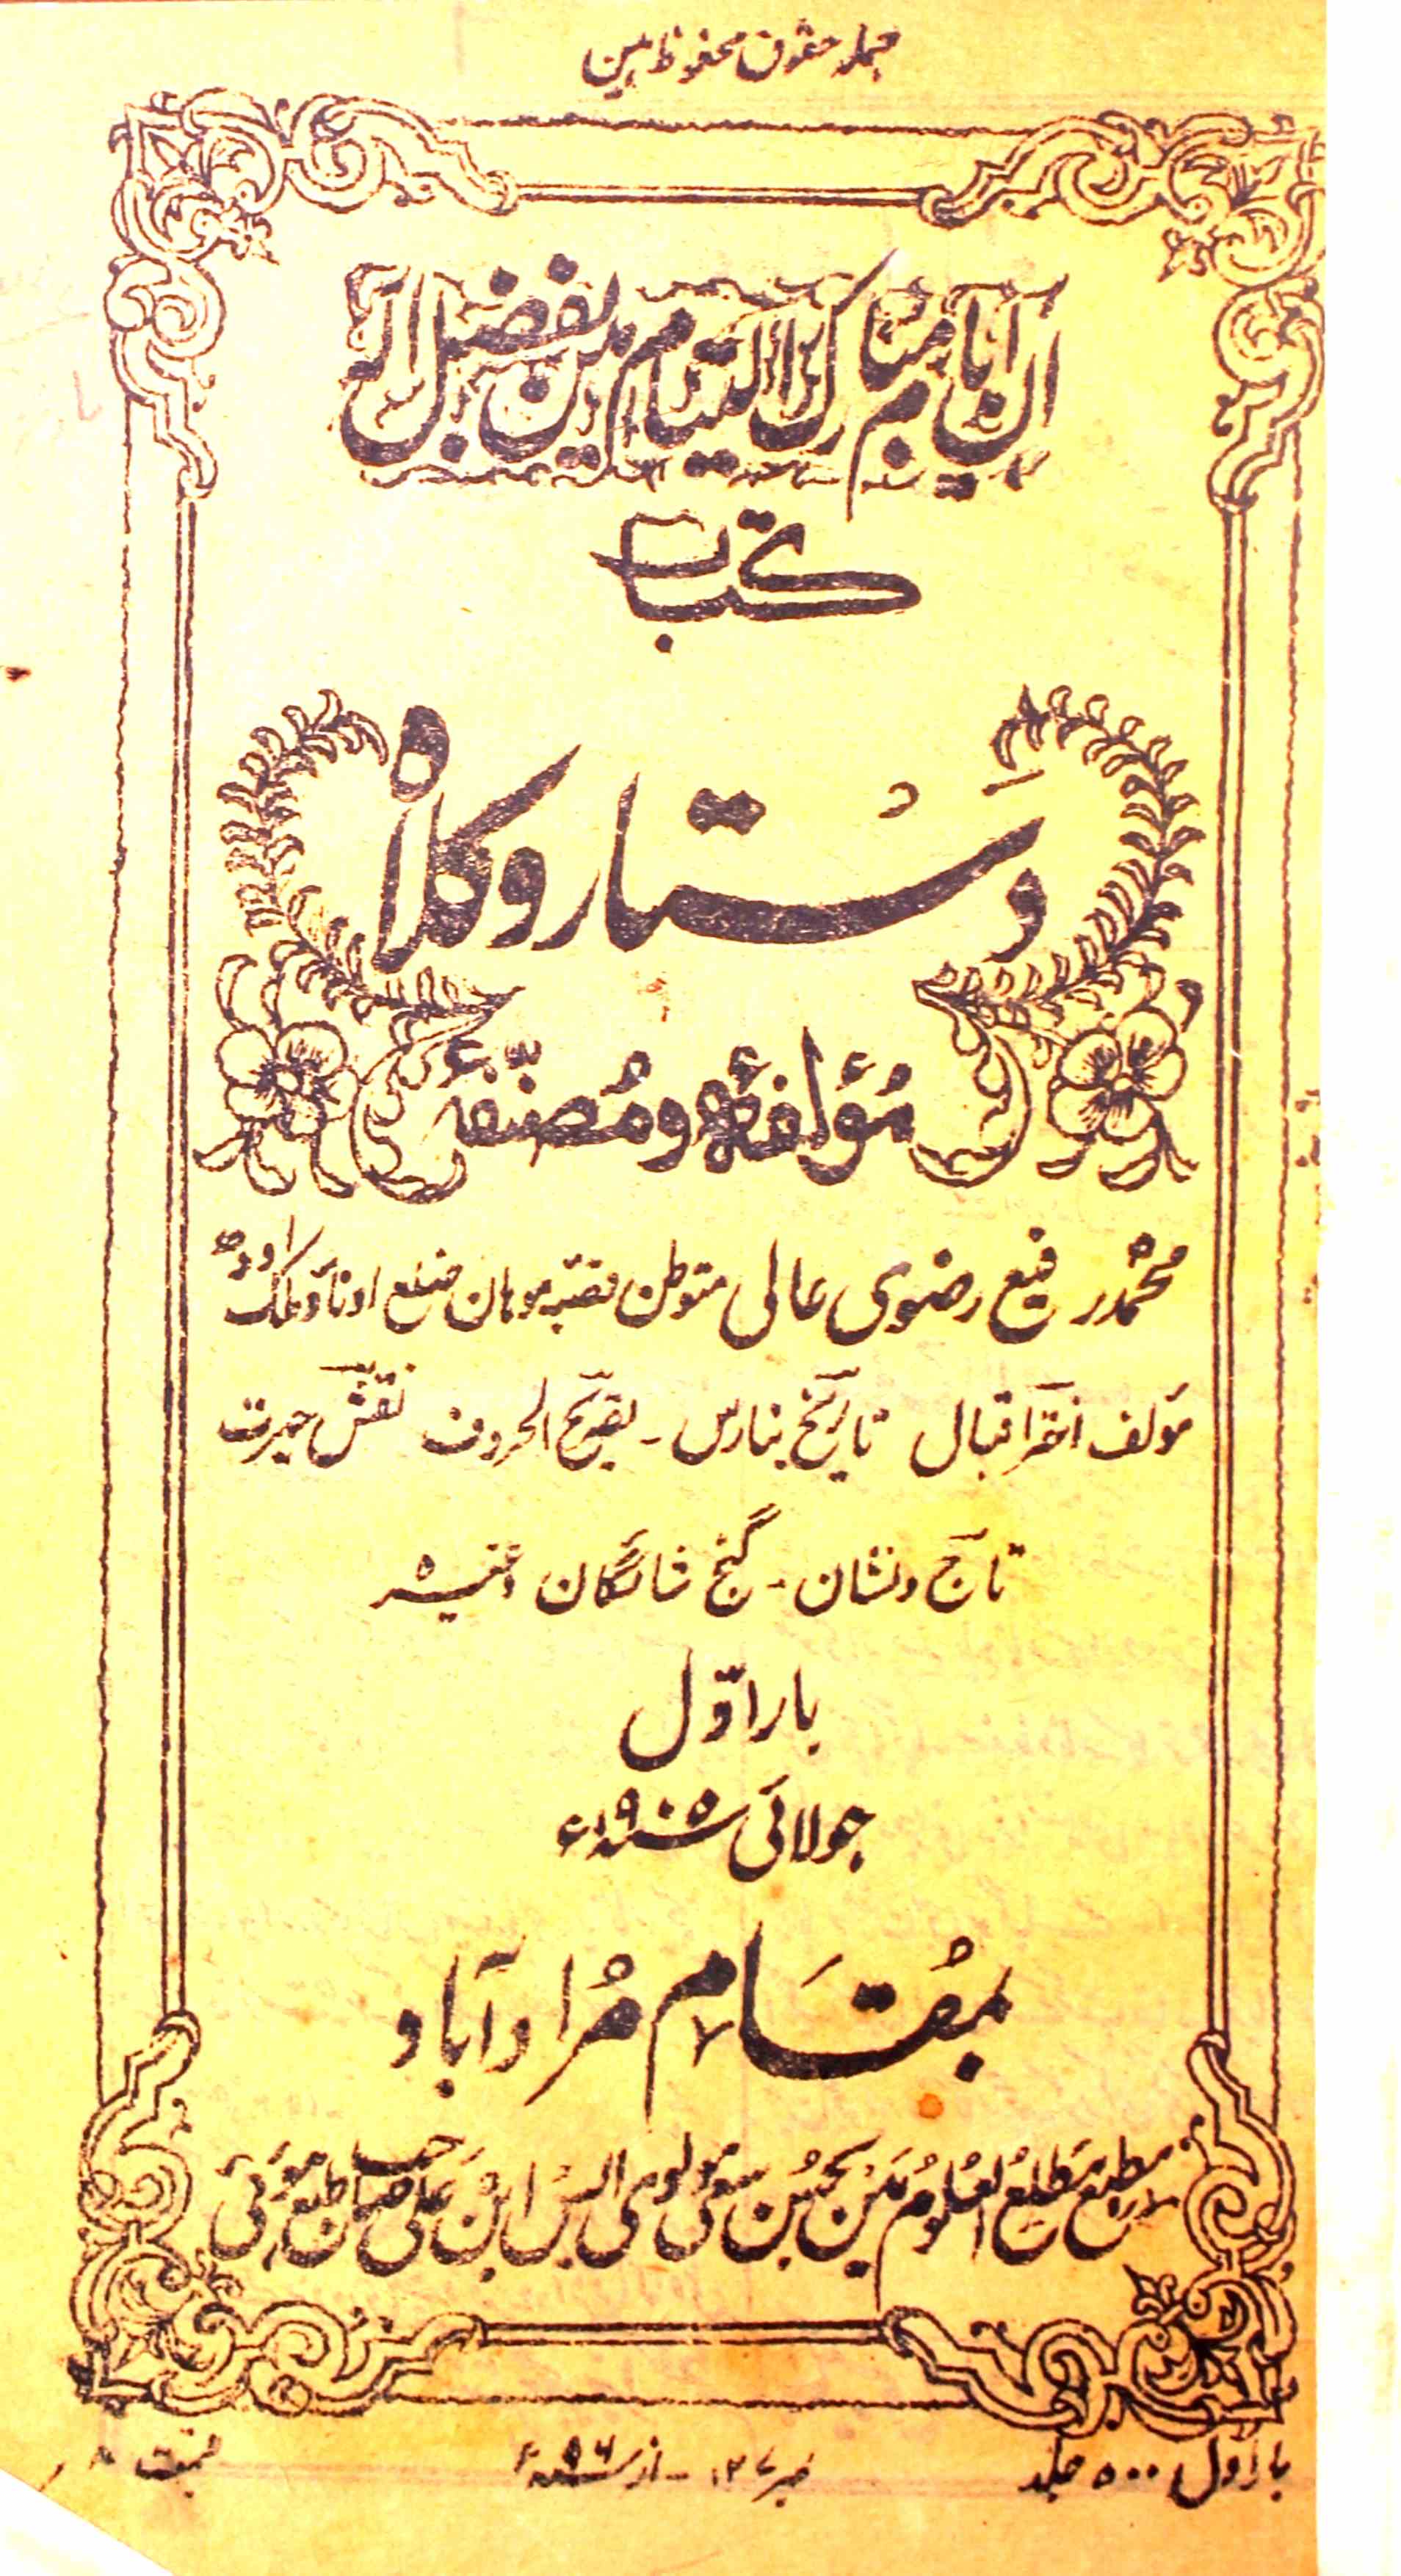 جملہ حقوق محفوظ ہین
ان ایام مبارک التیام مین بفضل الہٰی
کتاب
دَسْتار و کلاہ
مُؤلفۂ و مُصنّفۂ
محمّد رفیع رضوی عالی متوطن قصبہ موہان ضلع اوناؤ ملک اودھ
مؤلف اختر اقبال تاریخ بنارس ۔ تصریح الحروف نقش حیرت
تاج و نشان ۔ گنج شائگان وغیرہ
بار اوّل
جولائی سنہ ۱۹۰۵ء
بمُقَام مُرادآباد
در مطبع مَطلعُ العُلوم مین بحُسْن سعی مولوی ابْن عَلی صاحب طبع ہوئی
بار اول ۵۰۰ جلد
نمبر ۱۲۷ ۔ از
قیمت ۸ ؍